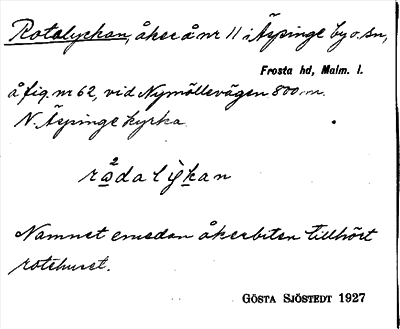 Rotalyckan, åker å nr 11 i Äspinge by o. sn,
Frosta hd, Malm. l.
å fig. nr 62, vid Nymöllevägen 800 m.
N. Äspinge kyrka.
2
rådalykan
Namnet emedan åkerbiten tillhört
rotehuset.
GÖSTA SJÖSTEDT 1927